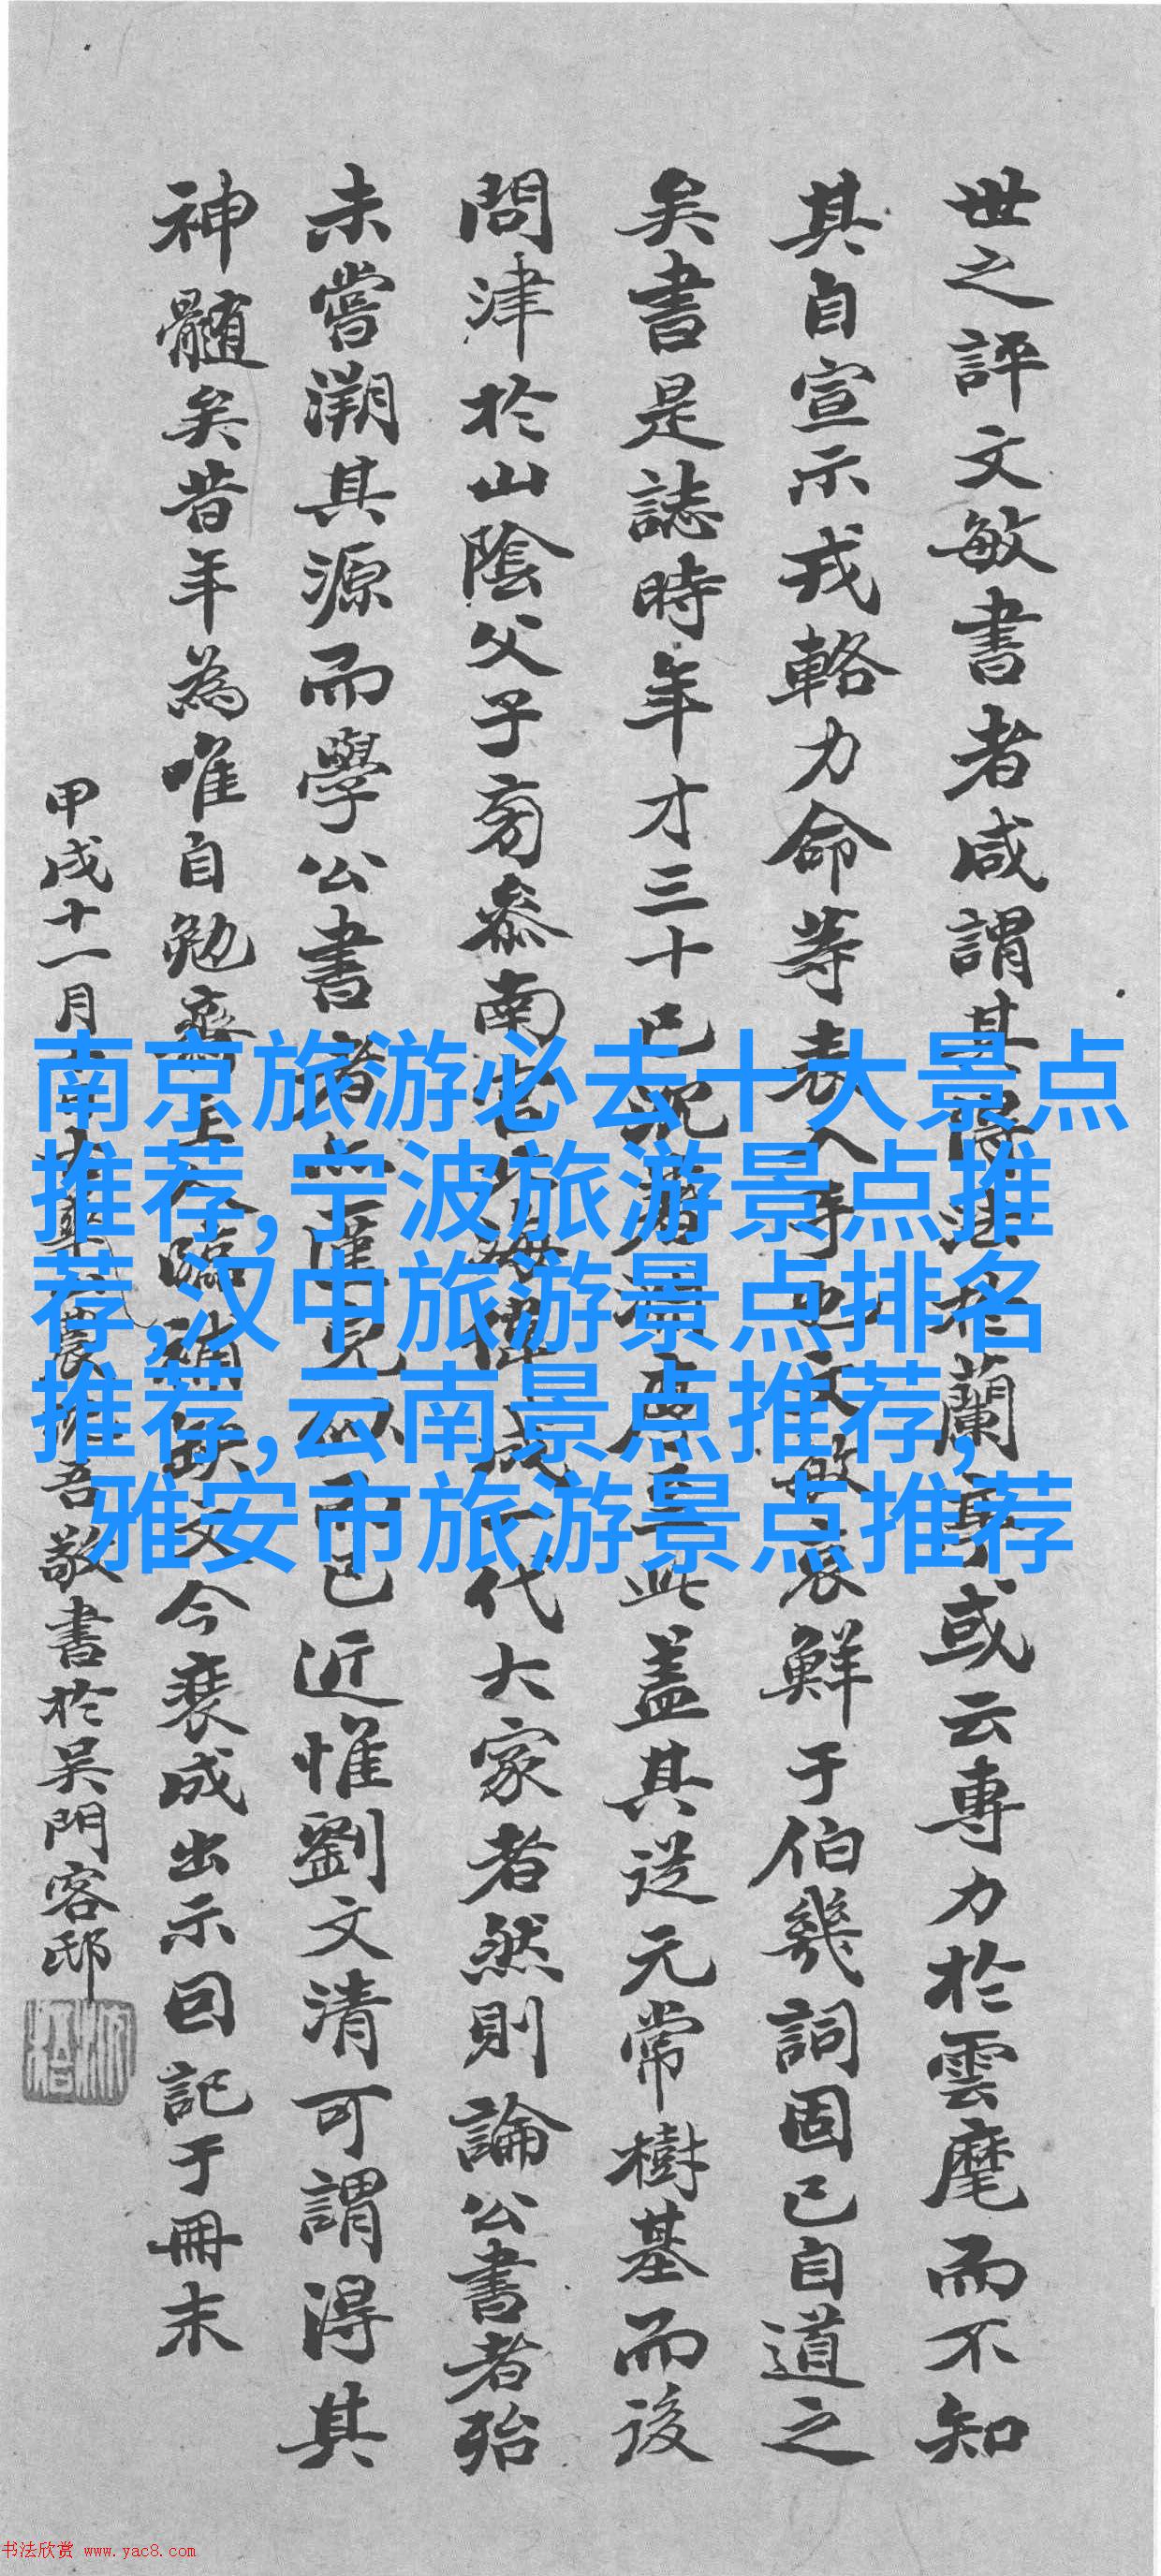 世之評文敏書者咸謂其得法於蘭亭或云專力於雲麾而不知
其自宣示戎輅力命等表入手也文敏哀鮮于伯幾詞固已自道之
矣書是誌時年才三十已
此蓋其從元常樹基而後
問津於山陰父子旁叅南
代大家者然則論公書者殆
未嘗溯其源而學公書者
已近惟劉文清可謂得其
神髓矣昔年為唯自勉齋主人臨補缺文今裝成出示回記于冊末
甲戌十一月
吾敬書於吴門客邸
南京旅游必去十大景点
推荐,宁波旅游景点推
荐,汉中旅游景点排名
推荐,云南景点推荐,
雅安市旅游景点推荐
书法欣赏 www.yac8.com